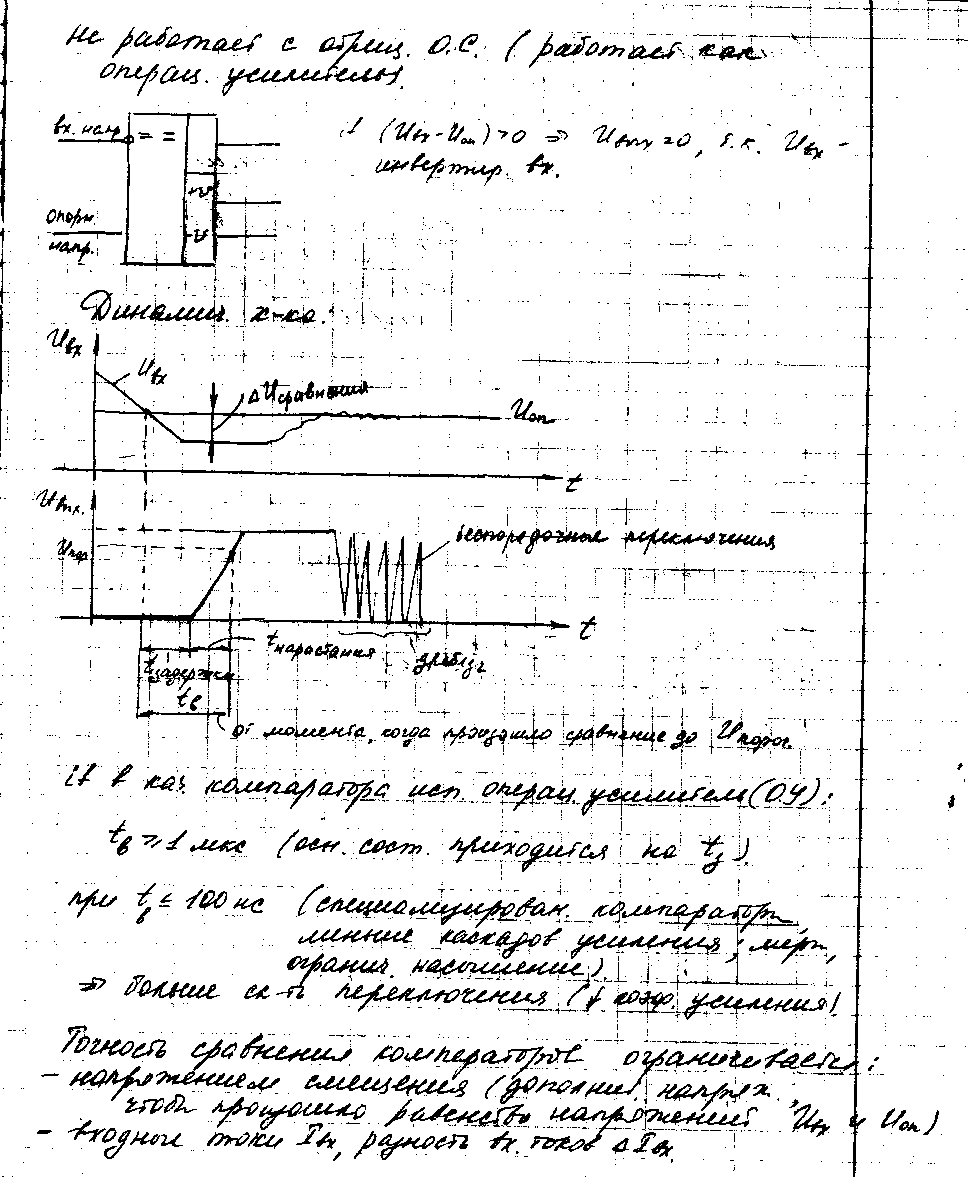 не работает с отриц. О.С. (работает как
операц. усилитель).
вх. напр.
= =
+v
-v
опорн.
напр.
(Uвх-Uоп)>0 ⇒ Uвых=0, т.к. Uвх -
инвертир. вх.
Динамич. х-ка.
Uвх
Uвх
ΔUсравнения
Uоп
t
Uвых.
Uпор
беспорядочные переключения
t
tнарастания
дребезг
tзадержки
tв
от момента, когда произошло сравнение до Uпорог.
If в кач. компаратора исп. операц. усилители (ОУ):
tв ≥ 1 мкс (осн. сост. приходится на tз).
при tв ≤ 100 нс (специализирован. компараторы,
меньше каскадов усиления; меры,
огранич. насыщение).
⇒ больше ск-ть переключения (↓ коэф. усиления).
Точность сравнения компараторов ограничивается:
- напряжением смещения (дополнит. напряж.,
чтобы произошло равенство напряжений Uвх и Uоп)
- входные токи Iвх, разность вх. токов ΔIвх.